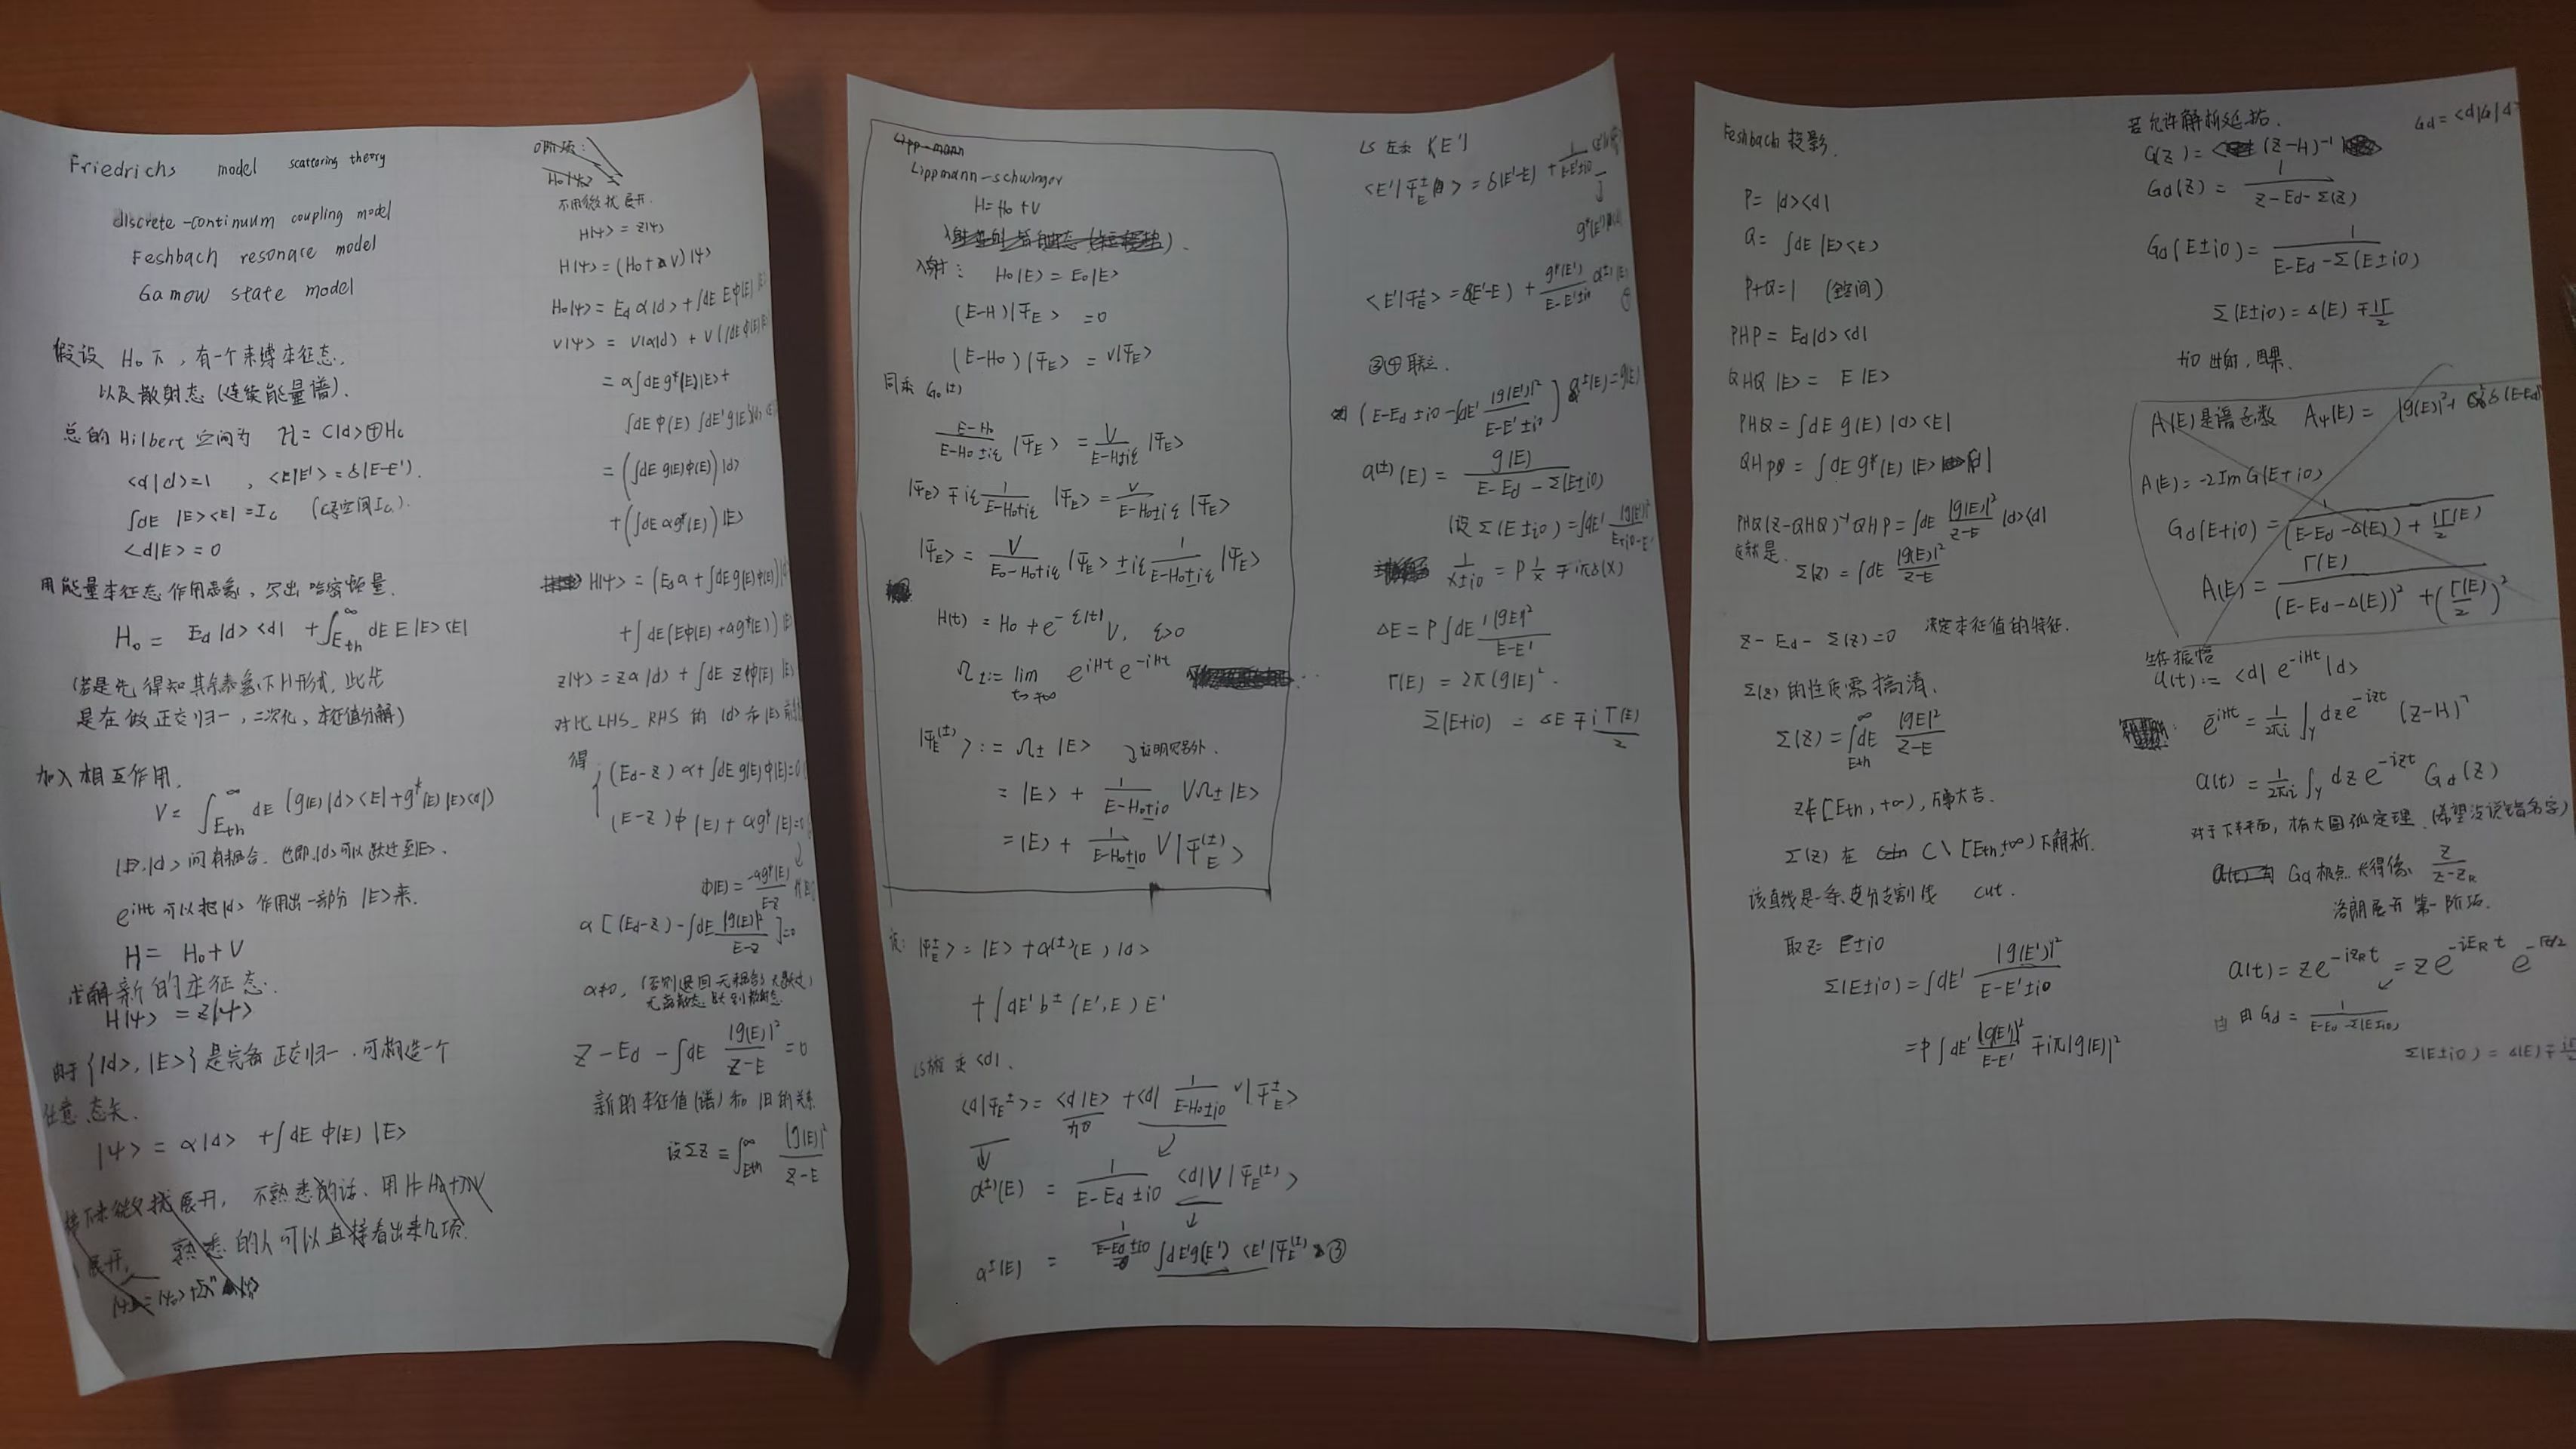 Friedrichs model scattering theory
discrete-continuum coupling model
Feshbach resonace model
Gamow state model
假设 H₀ 下，有一个束缚本征态.
以及散射态 (连续能量谱).
总的 Hilbert 空间为 ℋ = C|d> ⊕ Hc
<d|d> = 1 , <E|E'> = δ(E-E').
∫dE |E><E| = Ic
<d|E> = 0
H₀ = Ed |d><d| + ∫_{Eth}^∞ dE E |E><E|
加入相互作用.
V = ∫_{Eth}^∞ dE (g(E)|d><E| + g*(E)|E><d|)
|E>,|d> 间有耦合. 也即 |d> 可以跃迁至 |E>.
e^{iHt} 可以把 |d> 作用出一部分 |E> 来.
H = H₀ + V
求解新的本征态.
H|ψ> = z|ψ>
由于 {|d>, |E>} 是完备正交归一. 可构造一个
任意态矢.
|ψ> = α|d> + ∫dE φ(E) |E>
不熟悉的话、用
展开, 熟悉的人可以直接看出来几项.
0阶项:
不用微扰展开.
H|ψ> = z|ψ>
H|ψ> = (H₀ + V)|ψ>
H₀|ψ> = Ed α|d> + ∫dE Eφ(E)
V|ψ> = V(α|d>) + V(∫dE φ(E)
= α∫dE g*(E)|E> +
∫dE φ(E) ∫dE' g(E')
= (∫dE g(E)φ(E)) |d>
+ (∫dE αg*(E)) |E>
H|ψ> = (Ed α + ∫dE g(E)φ(E))
+ ∫dE (Eφ(E) + αg*(E))
z|ψ> = zα|d> + ∫dE zφ(E) |E>
对比 LHS_RHS 的 |d> 和 |E>
得
(Ed-z) α + ∫dE g(E) φ(E) = 0
(E-z) φ(E) + αg*(E) = 0
φ(E) = -αg*(E) / E-z
α [(Ed-z) - ∫dE |g(E)|² / E-z] = 0
α≠0,
z - Ed - ∫dE |g(E)|² / z-E = 0
新的本征值(谱)和旧的关系
设 Σz ≡ ∫_{Eth}^∞ |g(E)|² / z-E
Lippmann-schwinger
H = H₀ + V
入射: H₀|E> = E₀|E>
(E-H)|Ψ_E> = 0
(E-H₀)|Ψ_E> = V|Ψ_E>
同乘 G₀(±)
E-H₀ / E-H₀±iε |Ψ_E> = V / E-H₀±iε |Ψ_E>
|Ψ_E> ∓ iε 1 / E-H₀±iε |Ψ_E> = V / E-H₀±iε |Ψ_E>
|Ψ_E> = V / E₀-H₀±iε |Ψ_E> ± iε 1 / E-H₀±iε |Ψ_E>
H(t) = H₀ + e^{-ε|t|} V, ε>0
Ω± := lim_{t→∓∞} e^{iHt} e^{-iHt}
|Ψ_E^{(±)}> := Ω± |E> 证明见另外.
= |E> + 1 / E-H₀±i0 VΩ± |E>
= |E> + 1 / E-H₀±i0 V|Ψ_E^{(±)}>
设: |Ψ_E^±> = |E> + α^{(±)}(E) |d>
+ ∫dE' b^±(E', E) E'
<d|Ψ_E^±> = <d|E> + <d| 1 / E-H₀±i0 V|Ψ_E^±>
α^{(±)}(E) = 1 / E-Ed±i0 <d|V|Ψ_E^{(±)}>
α^±(E) = 1 / E-Ed±i0 ∫dE' g(E') <E'|Ψ_E^{(±)}> ③
LS 左乘 <E'|
<E'|Ψ_E^±> = δ(E'-E) + 1 / E-E'±i0
<E'|Ψ_E^±> = δ(E'-E) + g*(E') / E-E'±i0 α^{(±)}(E) ④
③④联立.
(E-Ed±i0 - ∫dE' |g(E')|² / E-E'±i0) α^±(E) = g(E)
α^{(±)}(E) = g(E) / E-Ed-Σ(E±i0)
(设 Σ(E±i0) = ∫dE' |g(E')|² / E±i0-E'
1 / x±i0 = P 1/x ∓ iπδ(x)
ΔE = P∫dE' |g(E)|² / E-E'
Γ(E) = 2π|g(E)|².
Σ(E±i0) = ΔE ∓ i Γ(E) / 2
Feshbach 投影.
P = |d><d|
Q = ∫dE |E><E|
P+Q=1 (全空间)
PHP = Ed|d><d|
QHQ |E> = E|E>
PHQ = ∫dE g(E) |d><E|
QHP = ∫dE g*(E) |E>
PHQ(z-QHQ)⁻¹QHP = ∫dE |g(E)|² / z-E |d><d|
这就是. Σ(z) = ∫dE |g(E)|² / z-E
z - Ed - Σ(z) = 0 决定本征值的特征.
Σ(z) 的性质需搞清.
Σ(z) = ∫_{Eth}^∞ dE |g(E)|² / z-E
z∉[Eth, +∞), 万事大吉.
Σ(z) 在 C \ [Eth,+∞) 下解析.
该直线是一条 支割线 cut.
取 z = E±i0
Σ(E±i0) = ∫dE' |g(E')|² / E-E'±i0
= P∫dE' |g(E')|² / E-E' ∓ iπ|g(E)|²
若允许解析延拓. Gd = <d|G|d>
G(z) = (z-H)⁻¹
Gd(z) = 1 / z-Ed-Σ(z)
Gd(E±i0) = 1 / E-Ed-Σ(E±i0)
Σ(E±i0) = Δ(E) ∓ iΓ/2
+i0 出射, 因果.
A(E)是谱函数 A_ψ(E) =
A(E) = -2Im G(E+i0)
Gd(E+i0) = 1 / (E-Ed-Δ(E)) + iΓ(E)/2
A(E) = Γ(E) / (E-Ed-Δ(E))² + (Γ(E)/2)²
生存振幅
a(t) := <d| e^{-iHt} |d>
e^{-iHt} = 1/2πi ∫_γ dz e^{-izt} (z-H)⁻¹
a(t) = 1/2πi ∫_γ dz e^{-izt} Gd(z)
对于下半平面, 有大圆弧定理. (希望没说错名字)
Gd 极点 长得像 Z / z-z_R
洛朗展开 第一阶项.
a(t) = Z e^{-iz_R t} = Z e^{-iE_R t} e^{-Γt/2}
由 Gd = 1 / E-Ed-Σ(E±i0)
Σ(E±i0) = Δ(E) ∓